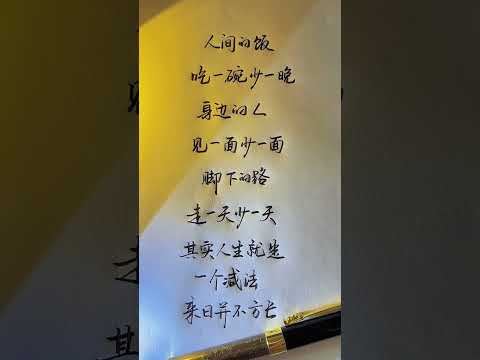 人间的饭
吃一碗少一晚
身边的人
见一面少一面
脚下的路
走一天少一天
其实人生就是
一个减法
来日并不方长